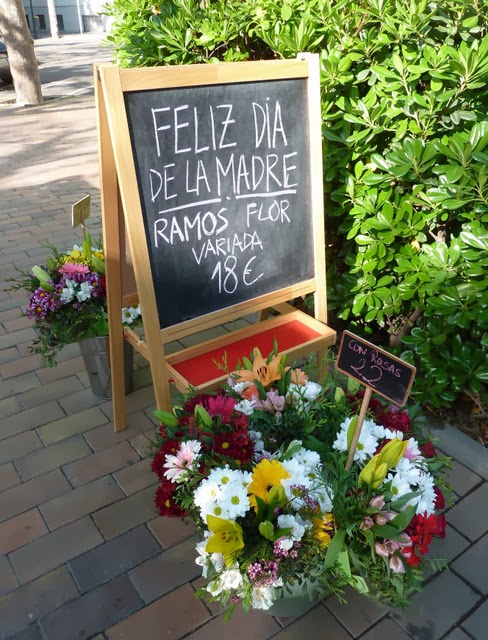 FELIZ DÍA
DE LA MADRE
RAMOS FLOR
VARIADA
18€
CON ROSAS
22